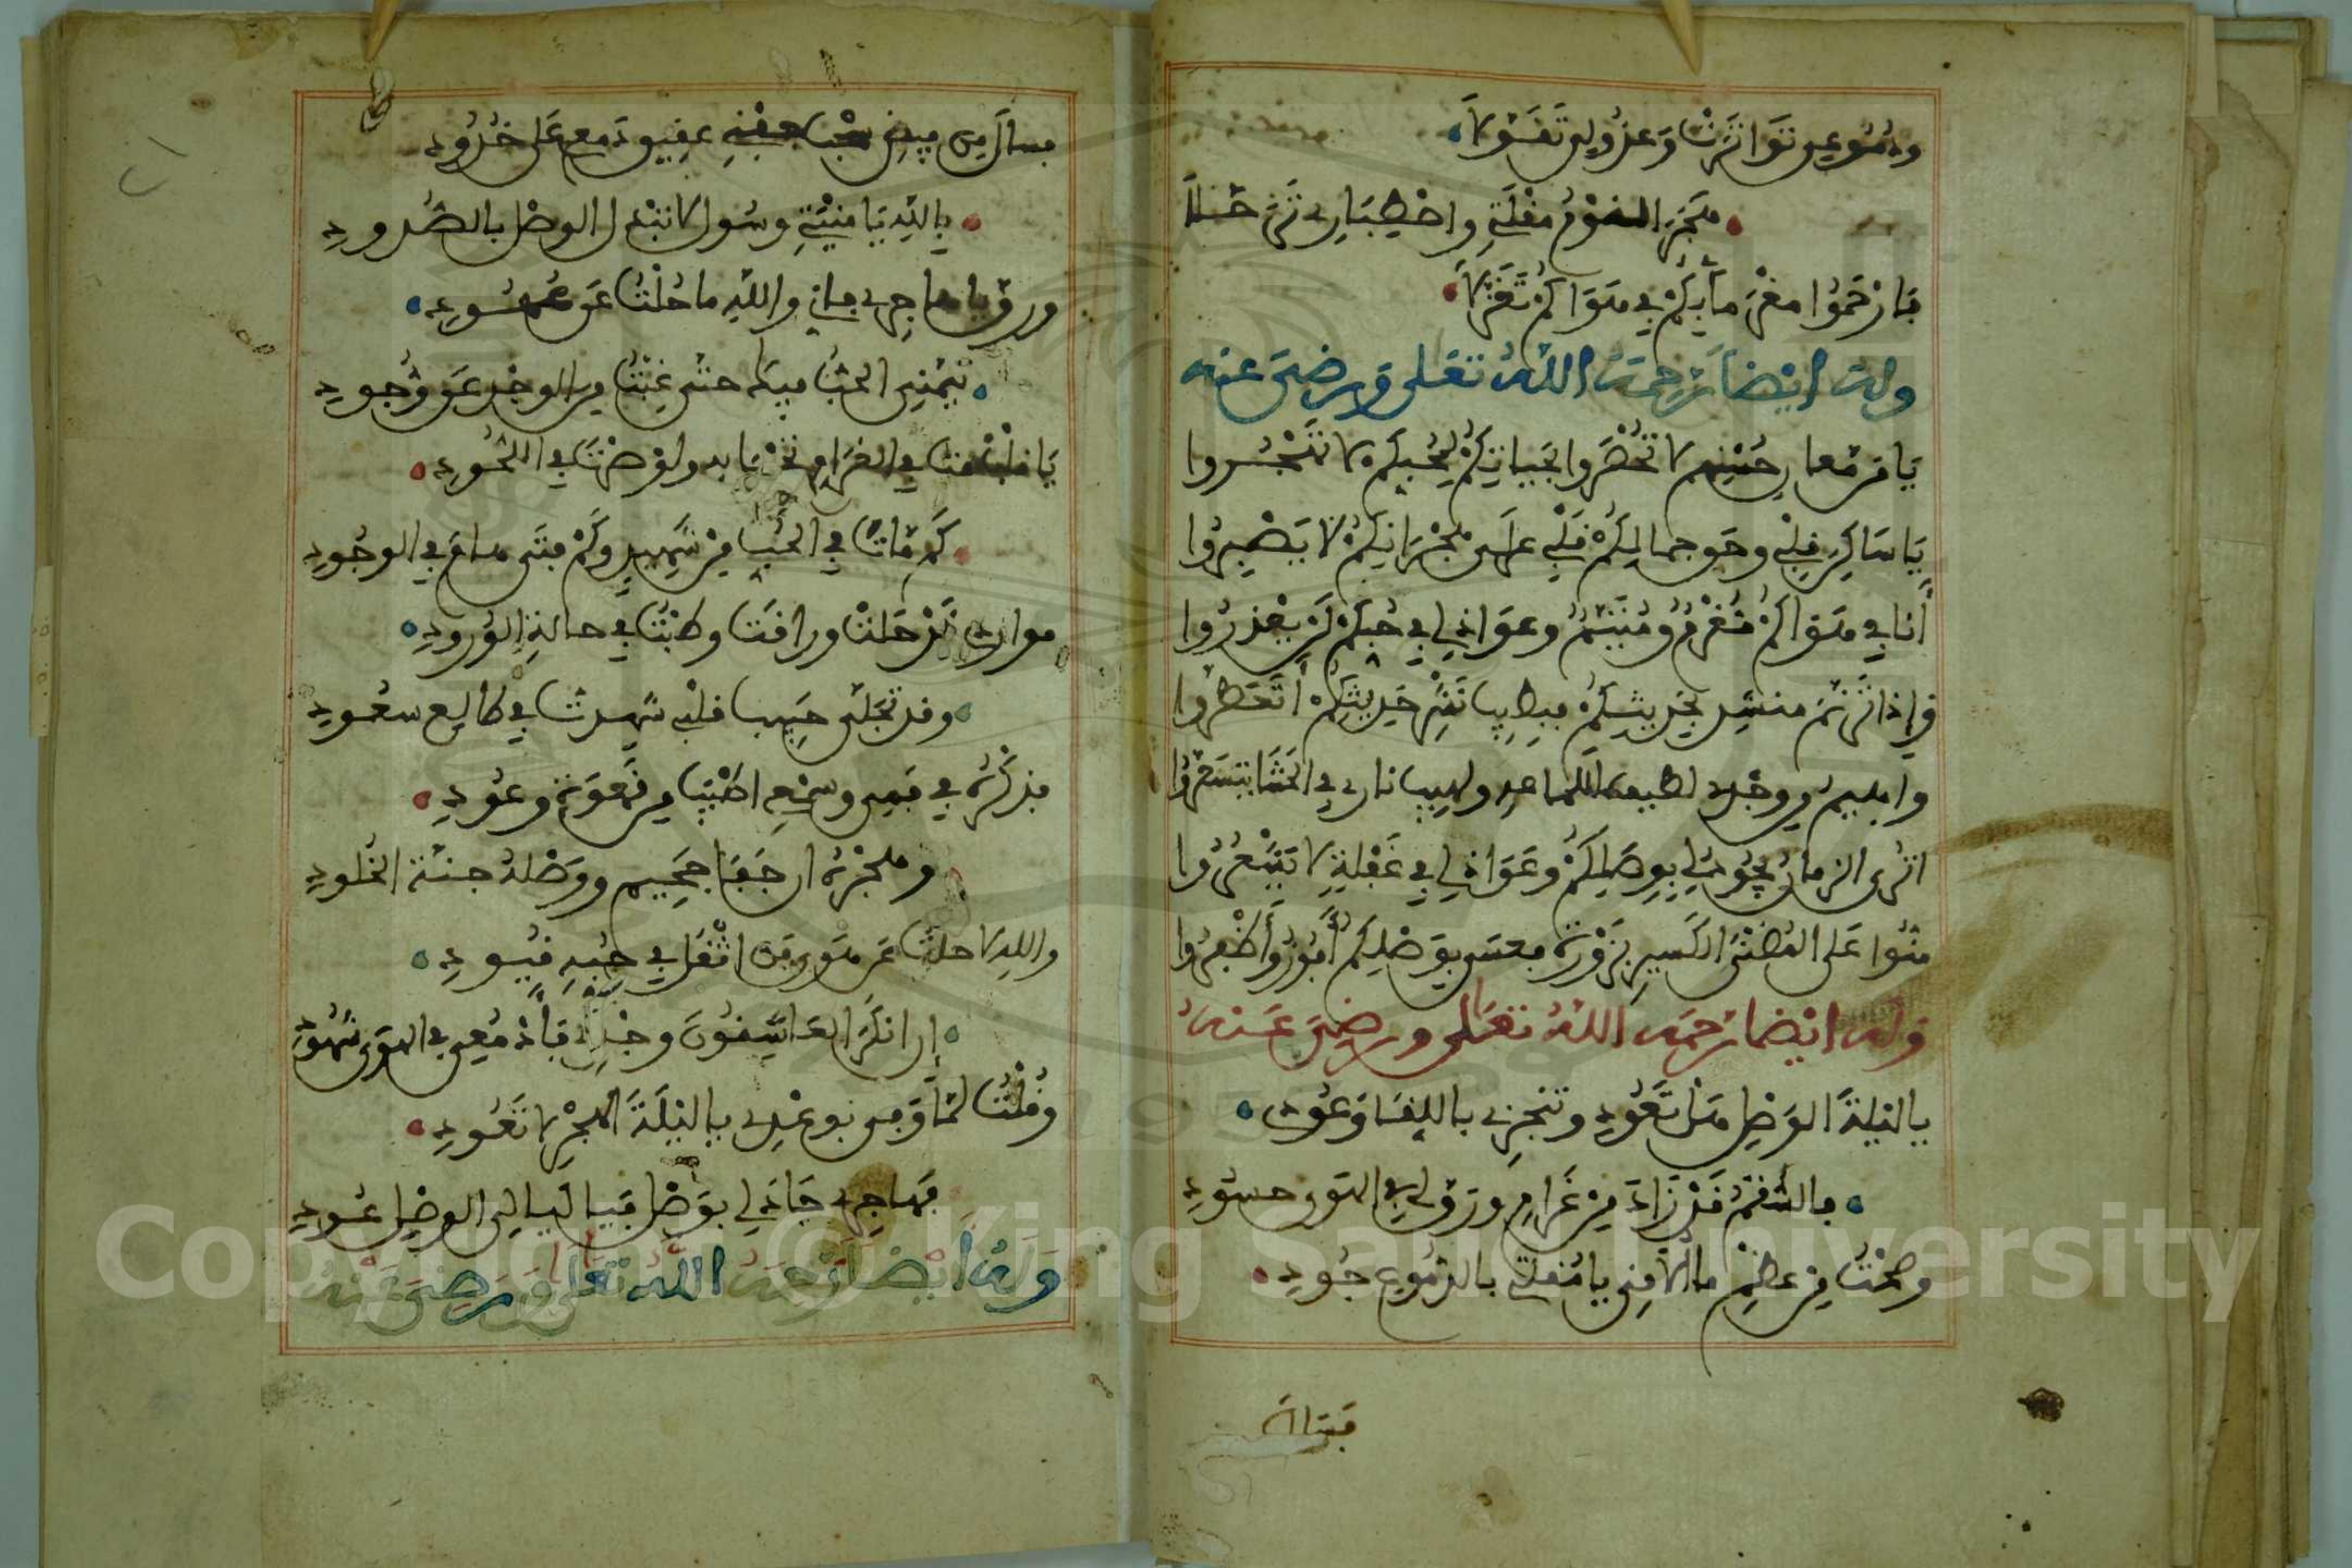 ودموعي تواترت وعذولي تقولا
هجر النوم مقلتي واصطباري ترحلا
فارحموا مغرما بكم في هواكم تغربا
وله ايضا رحمه الله تعلى ورضي عنه
يا من معاني حسنهم لا تحصر وا بحياتكم لمحبكم لا تهجروا
يا ساكني قلبي وحق جمالكم قلبي على هجرانكم لا يصبروا
أنا في هواكم مغرم ومتيم وعواذلي في حبكم لم يعذروا
وإذا ترنم منشد بحديثكم فبطيب نشر حديثكم أتعطروا
واهيم من وجدي لطيب ولهيب نار في الحشا تتسعروا
اترى الزمان يجود لي بوصلكم وعواذلي في غفلة لا تشعروا
منوا على المضنى الكسير بزورة فعسى بوصلكم أفوز وأظفروا
وله ايضا رحمه الله تعلى ورضي عنه
يا ليلة الوصل هل تعود وتنجزي باللقا وعود
فالسقم قد زاد من غرام ورق لي في الهوى حسود
وصحت من عظم ما ألاقي يا مقلتي بالدموع جود
فسال
فسال من جفنه عقيق دمعي على خدود
بالله يا منيتي وسول لا تبدل الوصل بالصدود
ورق يا هاجري فاني والله ما حلت عن عهود
تيمني الحب فيك حتى غبت من الوجد عن وجود
يا في الغرام ولو صرت في اللحود
كم مات في الحب من شهيد وكم فتى هام في الوجود
موارد قد حلت وراقت وطبت في حالة الورود
وقد تجلى حبيب قلبي شهدت في طالع سعود
فذكره في فمي وسمعي اطيب من نغمة وعود
وهجره ان جفا جحيم ووصله جنة الخلود
والله لا حلت عن هوى من اثقل في حبه قيود
إن انكر العاشقون وجدي فأدمعي في الهوى شهود
وقلت لما وفى بوعدي يا ليلة الهجر لا تعود
فهاجري جاد لي بوصل فيا ليالي الوصل عود
وله أيضا رحمه الله تعلى ورضي عنه
Copyright © King Saud University